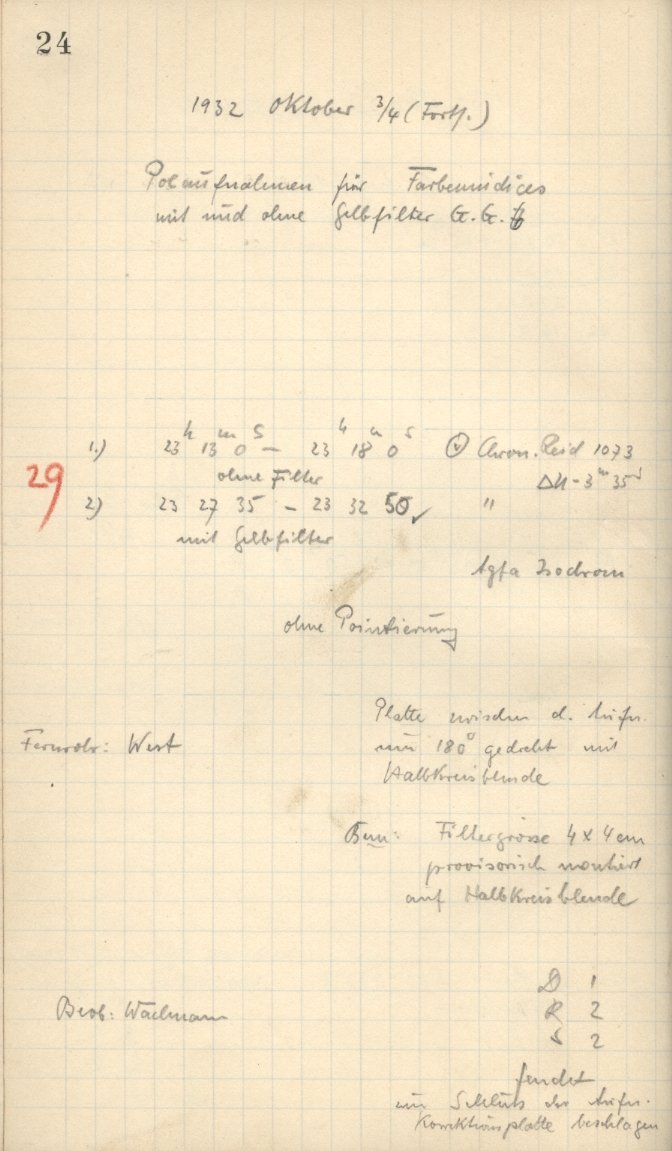 24
1932 Oktober 3/4 (Forts.)
Polaufnahmen für Farbenindices
mit und ohne Gelbfilter G.G.
1.) 23h 13m 0s — 23h 18m 0s Chron. Reid 1073
ohne Filter ΔU -3m 35s
29
2) 23 27 35 — 23 32 50 ✓ "
mit Gelbfilter
Agfa Isochrom
ohne Pointierung
Platte zwischen d. Aufn.
Fernrohr: West um 180° gedreht mit
Halbkreisblende
Bem: Filtergrösse 4 x 4 cm
provisorisch montiert
auf Halbkreisblende
D 1
Beob: Wachmann R 2
S 2
feucht
am Schluß der Aufn.
Korrektionsplatte beschlagen